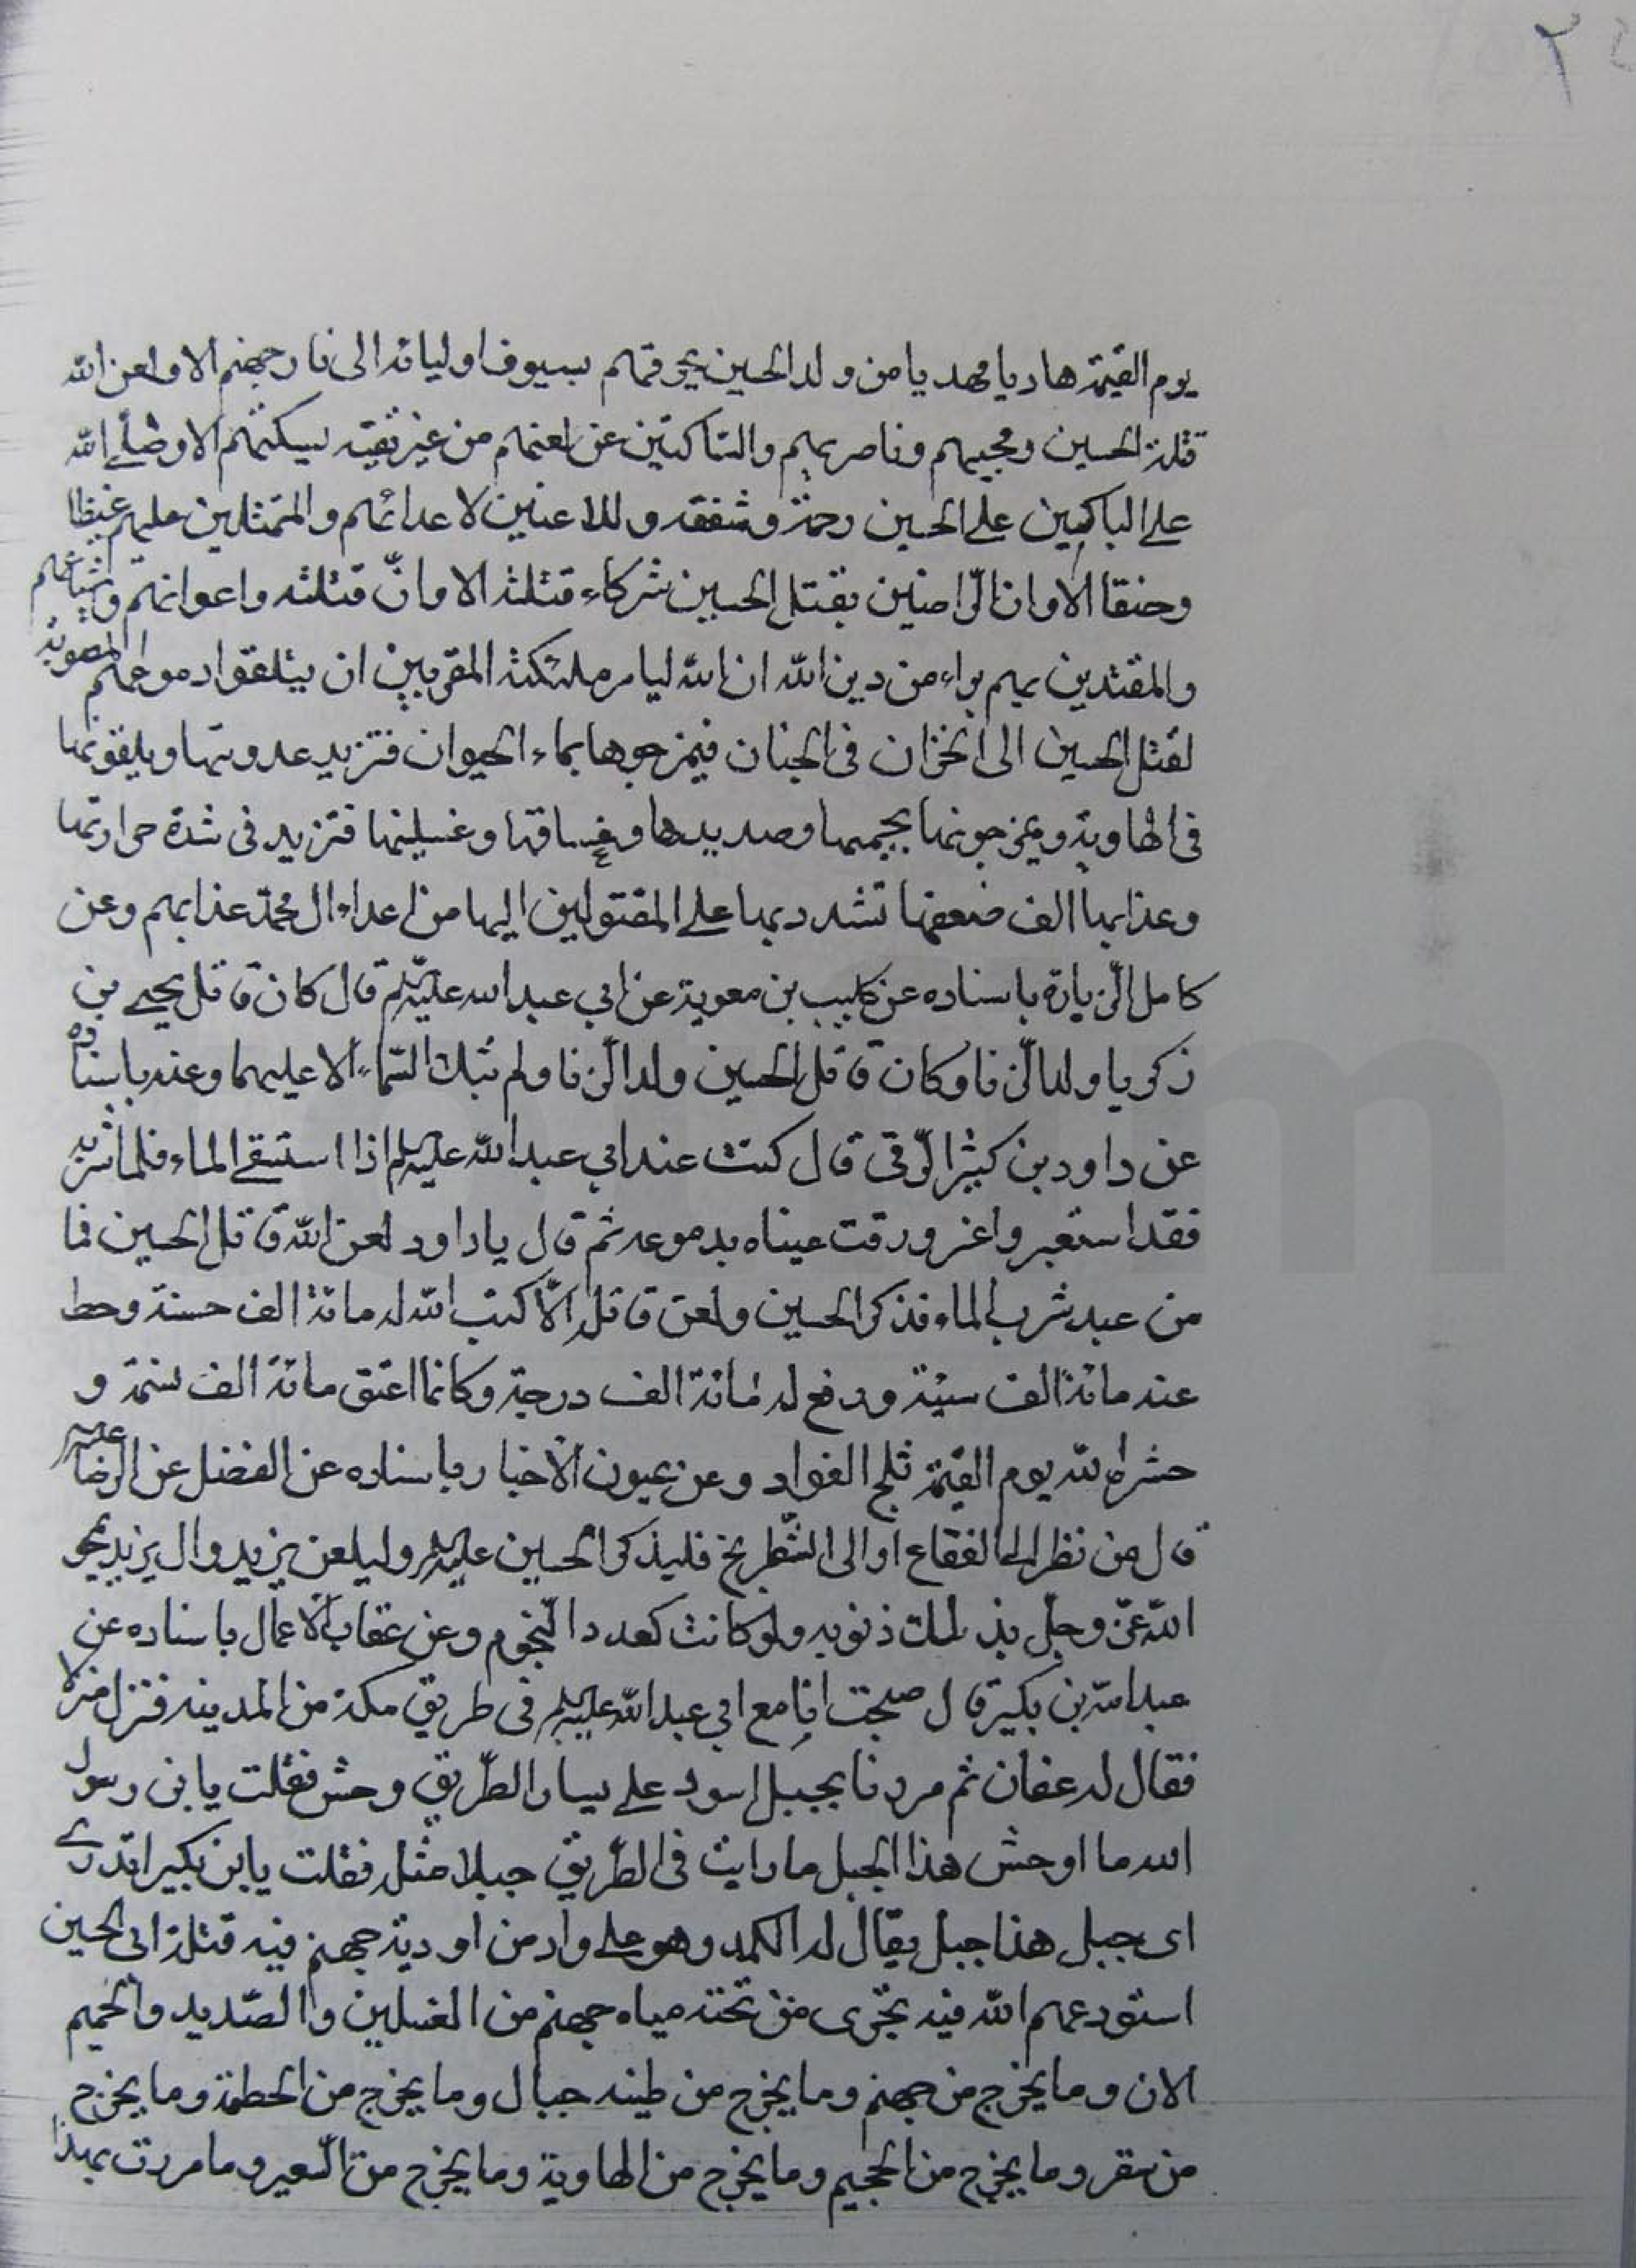 يوم القيمة هاديا مهديا من ولد الحسين يحرقهم بسيوف اوليائه الى نار جهنم الا ولعن الله
قتلة الحسين ومحبيهم وناصريهم والساكتين عن لعنهم من غير تقية يسكتهم الا وصلى الله
على الباكين على الحسين رحمة وشفقة وللاعنين لاعدائهم والممتثلين عليهم غيظا
وحنقا الا وان الراضين بقتل الحسين شركاء قتلته الا وان قتلته واعوانهم واشياعهم
والمقتدين بهم براء من دين الله ان الله ليامر ملئكته المقربين ان يتلقوا دموعهم المصوبة
لقتل الحسين الى الخزان فى الجنان فيمزجوها بماء الحيوان فتزيد عذوبتها ويلقونها
فى الهاوية ويمزجونها بحميمها وصديدها وغساقها وغسلينها فتزيد فى شدة حرارتها
وعذابها الف ضعفها تشدد بها على المقتولين اليها من اعداء ال محمد عذابهم وعن
كامل الزيارة باسناده عن كليب بن معوية عن ابي عبد الله عليه السلام قال كان قاتل يحيى بن
زكريا ولد الزنا وكان قاتل الحسين ولد الزنا ولم تبك السماء الا عليهما وعنه باسناده
عن داود بن كثير الرقى قال كنت عند ابي عبد الله عليه السلام اذا استسقى الماء فلما شربه
فقد استعبر واغرورقت عيناه بدموعه ثم قال يا داود لعن الله قاتل الحسين فما
من عبد شرب الماء فذكر الحسين ولعن قاتله الا كتب الله له مائة الف حسنة وحط
عنه مائة الف سيئة ورفع له مائة الف درجة وكانما اعتق مائة الف نسمة و
حشره الله يوم القيمة ثلج الفواد وعن عيون الاخبار باسناده عن الفضل عن الرضا عليه السلام
قال من نظر الى الفقاع او الى الشطرنج فليذكر الحسين عليه السلام وليلعن يزيد وال يزيد يمحو
الله عز وجل بذلك ذنوبه ولو كانت كعدد النجوم وعن عقاب الاعمال باسناده عن
عبد الله بن بكير قال صحبت انا مع ابي عبد الله عليه السلام فى طريق مكة من المدينه فنزل منزلا
فقال له عفان ثم مردنا بجبل اسود على يسار الطريق وحش فقلت يا بن رسول
الله ما اوحش هذا الجبل ما رايت فى الطريق جبلا مثله فقلت يابن بكير اتدرى
اى جبل هذا جبل يقال له الكمد وهو على واد من اودية جهنم فيه قتلة ابى الحسين
استودعهم الله فيه تجرى من تحته مياه جهنم من الغسلين والصديد والحميم
الان وما يخرج من جهنم وما يخرج من طينه جبال وما يخرج من الحطمة وما يخرج
من سقر وما يخرج من الجحيم وما يخرج من الهاوية وما يخرج من السعير وما مررت بهذا